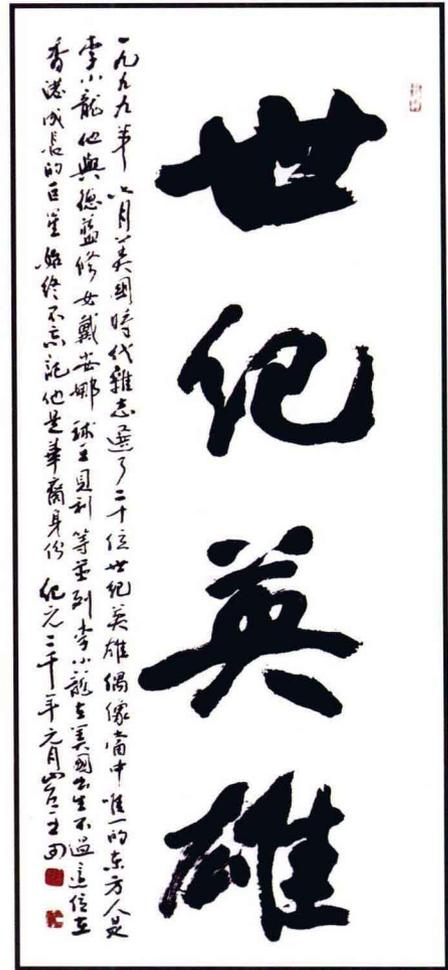 世纪英雄
一九九九年六月美國時代雜志選了二十位世纪英雄偶像當中唯一的东方人是
李小龍他與德蘭修女戴安娜球王貝利等並列李小龍在美國出生不過這位在
香港成長的巨星始终不忘記他是華裔身份纪元二千年元月